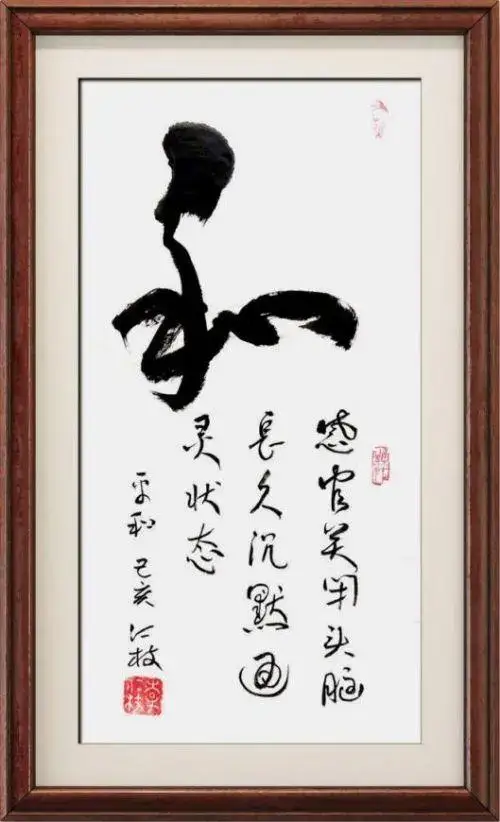 和
感官关闭头脑
长久沉默通
灵状态
平和 己亥 江枝